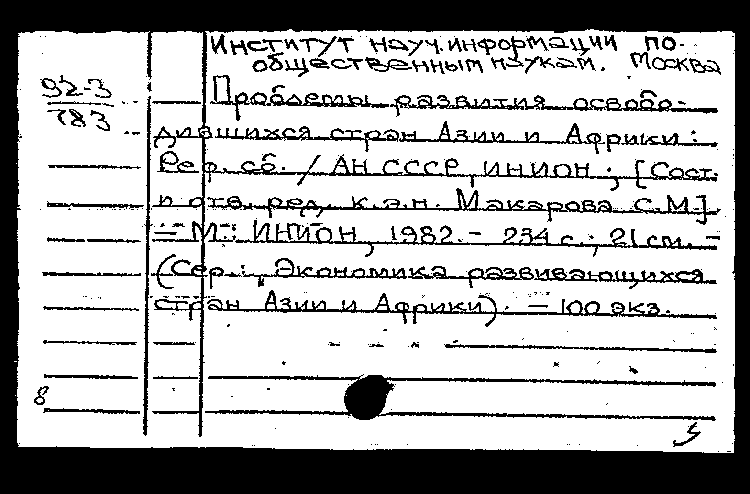 Институт науч. информации по
общественным наукам. Москва
92-3
783
Проблемы развития освобо-
дившихся стран Азии и Африки:
Реф. сб. / АН СССР, ИНИОН; [Сост.
и отв. ред. к.э.н. Макарова С.М.]
= М.: ИНИОН, 1982. - 234 с.; 21 см. -
(Сер.: Экономика развивающихся
стран Азии и Африки). - 100 экз.
8